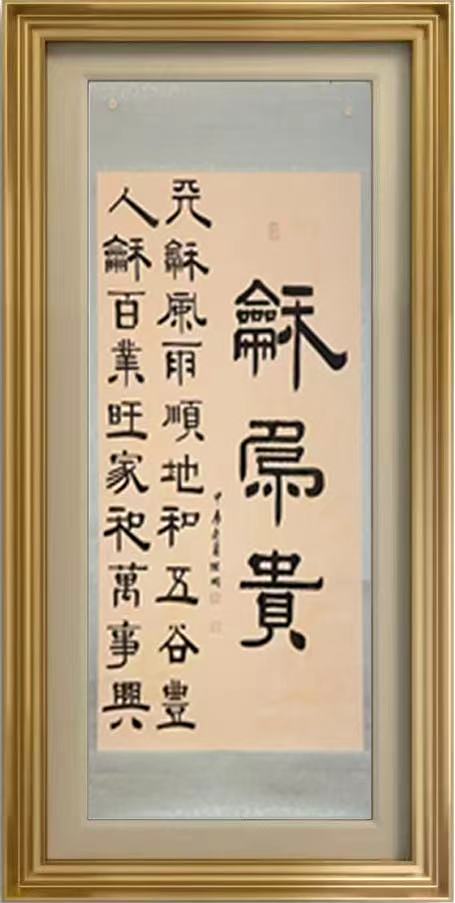 龢爲貴
天龢風雨順地和五谷豐
人龢百業旺家和萬事興